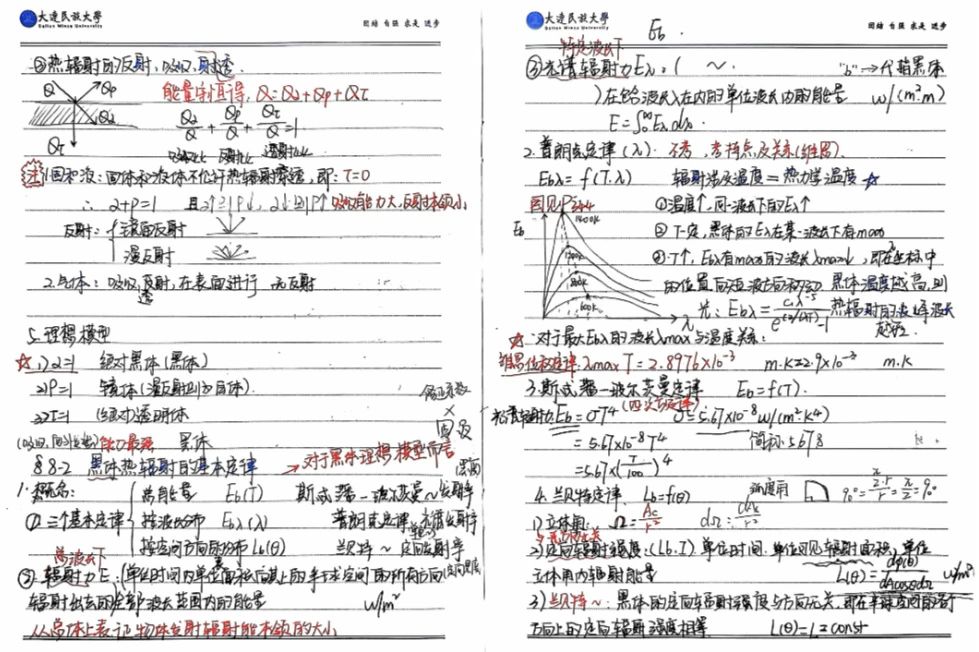 大连民族大学
Dalian Minzu University
团结 自强 求是 进步
③热辐射的反射,吸收,透射.
Q Qρ
Qα
Qτ
能量守恒得, Q=Qα+Qρ+Qτ
Qα/Q + Qρ/Q + Qτ/Q =1
吸收比 反射比 透射比
注 1.固和液:固体和液体不允许热辐射穿透,即:τ=0
∴ α+ρ=1 且α↑ρ↓, α↓ρ↑ 吸收能力大,反射本领小
反射: 镜面反射
漫反射
2.气体:吸收,反射,在表面进行 无反射
透
5.理想模型
☆ 1) α=1 绝对黑体(黑体)
2) ρ=1 镜体(漫反射则为白体)
3) τ=1 绝对透明体
修正系数
×
(吸收,同 能力最强 黑体
§8-2 黑体热辐射的基本定律 → 对于黑体理想模型而言
1.概念:
① 三个基本定律
总能量 Eb(T) 斯忒藩-波尔茨曼~ 发射率
按波长分布 Ebλ(λ) 普朗克定律 光谱发射率
按空间方向的分布 Lb(θ) 兰贝特~ 定向发射率
② 辐射力E:(单位时间内单位表面积向其上的半球空间的所有方向
辐射出去的全部波长范围内的能量 w/m²
从总体上表征物体发射辐射能本领的大小
大连民族大学
Dalian Minzu University
团结 自强 求是 进步
Eb.
特定波长下
③光谱辐射力Eλ:( ~. "b"→代指黑体
)在包含波长λ在内的单位波长内的能量 w/(m².m)
E=∫₀^∞ Eλdλ.
2.普朗克定律(λ). 不考,考特点及关系(维恩).
Ebλ=f(T.λ) 辐射涉及温度=热力学温度 ☆
图见P344
Eb
λ
①温度↑,同一波长下的Eλ↑
②T一定,黑体的Eλ在某一波长下有max
③T↑, Ebλ有max的波长λmax↓,即在坐标中
的位置向短波方向移动 黑体温度越高,则
光:Ebλ=c₁λ⁻⁵/(e^(c₂/(λT))-1) 热辐射的波峰波长
越短.
☆ 对于最大Ebλ的波长λmax与温度关系:
维恩位移定律:λmaxT=2.8976×10⁻³ m.K≈2.9×10⁻³ m.K
3.斯忒藩-波尔茨曼定律 Eb=f(T).
(四次方定律)
Eb=σT⁴ σ=5.67×10⁻⁸w/(m².K⁴)
=5.67×10⁻⁸T⁴ 简称:5678
=5.67×(T/100)⁴
4.兰贝特定律 Lb=f(θ)
1)立体角: Ω=Ac/r² dΩ=dAc/r²
2)定向辐射强度:(Lb.I)单位时间.单位可见辐射面积,单位
立体角内辐射能量 L(θ)=dΦ(θ)/dAcosθdΩ w/m²
3)兰贝特~:黑体的定向辐射强度与方向无关,即在半球空间的各个
方向上的定向辐射强度相等 L(θ)=L=const